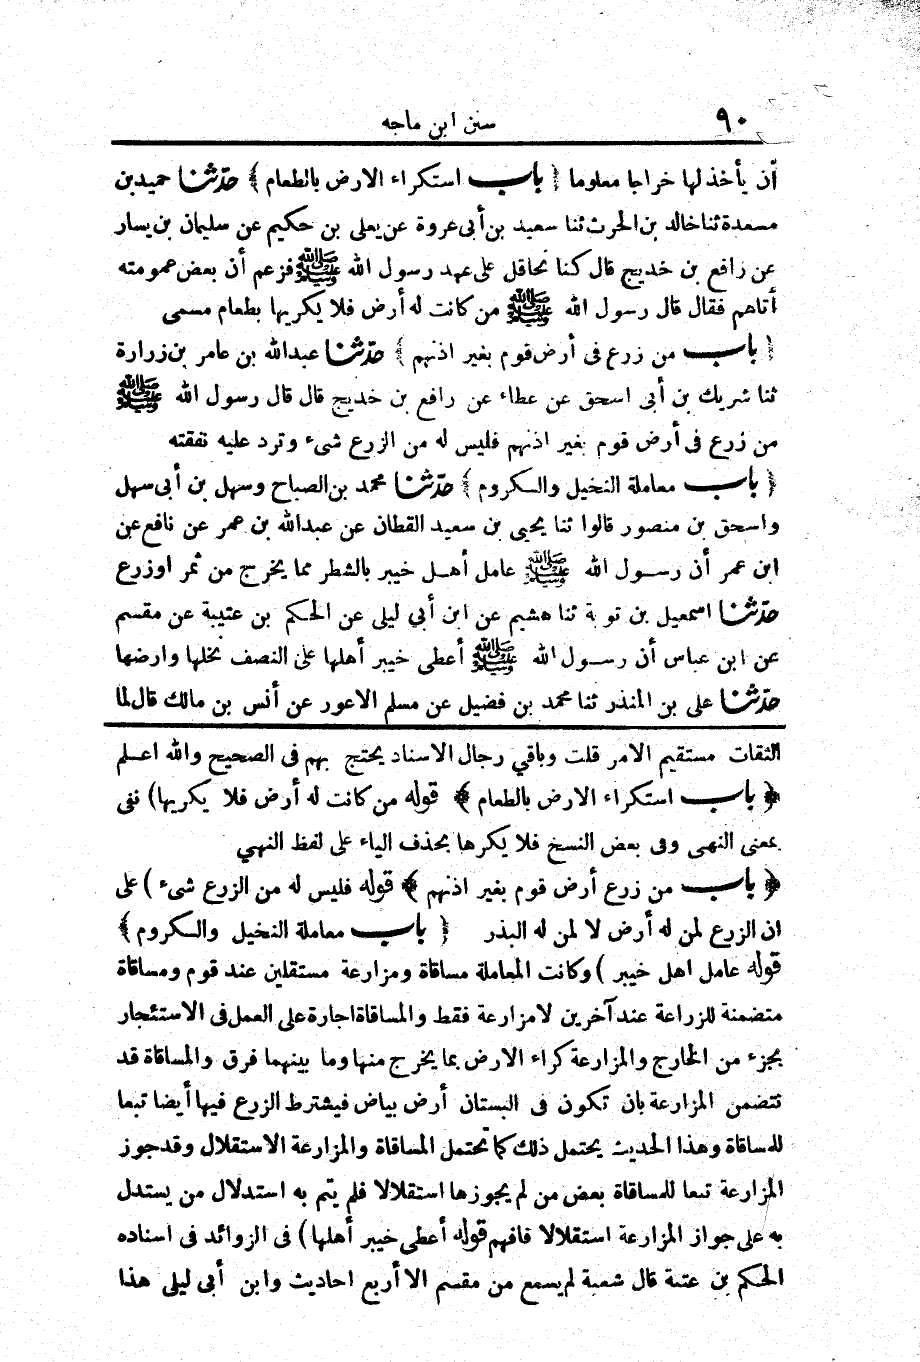 ٩٠ سنن ابن ماجه
أن يأخذ لها خراجا معلوما ﴿ باب استكراء الارض بالطعام ﴾ حدّثنا حميد بن
مسعدة ثنا خالد بن الحرث ثنا سعيد بن أبى عروة عن يعلى بن حكيم عن سليمان بن يسار
عن رافع بن خديج قال كنا نحاقل على عهد رسول الله ﷺ فزعم أن بعض عمومته
أتاهم فقال قال رسول الله ﷺ من كانت له أرض فلا يكريها بطعام مسمى
﴿ باب من زرع فى أرض قوم بغير اذنهم ﴾ حدّثنا عبدالله بن عامر بن زرارة
ثنا شريك بن أبى اسحق عن عطاء عن رافع بن خديج قال قال رسول الله ﷺ
من زرع فى أرض قوم بغير اذنهم فليس له من الزرع شىء وترد عليه نفقته
﴿ باب معاملة النخيل والكروم ﴾ حدّثنا محمد بن الصباح وسهل بن أبى سهل
واسحق بن منصور قالوا ثنا يحيى بن سعيد القطان عن عبدالله بن عمر عن نافع عن
ابن عمر أن رسول الله ﷺ عامل أهل خيبر بالشطر مما يخرج من ثمر اوزرع
حدّثنا اسمعيل بن توبة ثنا هشيم عن ابن أبي ليلى عن الحكم بن عتيبة عن مقسم
عن ابن عباس أن رسول الله ﷺ أعطى خيبر أهلها على النصف نخلها وارضها
حدّثنا على بن المنذر ثنا محمد بن فضيل عن مسلم الاعور عن أنس بن مالك قال لما
الثقات مستقيم الامر قلت وباقي رجال الاسناد يحتج بهم فى الصحيح والله اعلم
﴿ باب استكراء الارض بالطعام ﴾ قوله من كانت له أرض فلا يكريها) نفى
بمعنى النهى وفى بعض النسخ فلا يكرها بحذف الياء على لفظ النهي
﴿ باب من زرع أرض قوم بغير اذنهم ﴾ قوله فليس له من الزرع شىء ) على
ان الزرع لمن له أرض لا لمن له البذر ﴿ باب معاملة النخيل والكروم ﴾
قوله عامل اهل خيبر ) وكانت المعاملة مساقاة ومزارعة مستقلين عند قوم ومساقاة
متضمنة للزراعة عند آخرين لا مزارعة فقط والمساقاة اجارة على العمل فى الاستئجار
بجزء من الخارج والمزارعة كراء الارض بما يخرج منها وما بينهما فرق والمساقاة قد
تتضمن المزارعة بان تكون فى البستان أرض بياض فيشترط الزرع فيها أيضا تبعا
للمساقاة وهذا الحديث يحتمل ذلك كما تحتمل المساقاة والمزارعة الاستقلال وقد جوز
المزارعة تبعا للمساقاة بعض من لم يجوزها استقلالا فلم يتم به استدلال من يستدل
به على جواز المزارعة استقلالا فافهم قوله أعطى خيبر أهلها) فى الزوائد فى اسناده
الحكم بن عتبة قال شعبة لم يسمع من مقسم الا أربع احاديث وابن أبى ليلى هذا